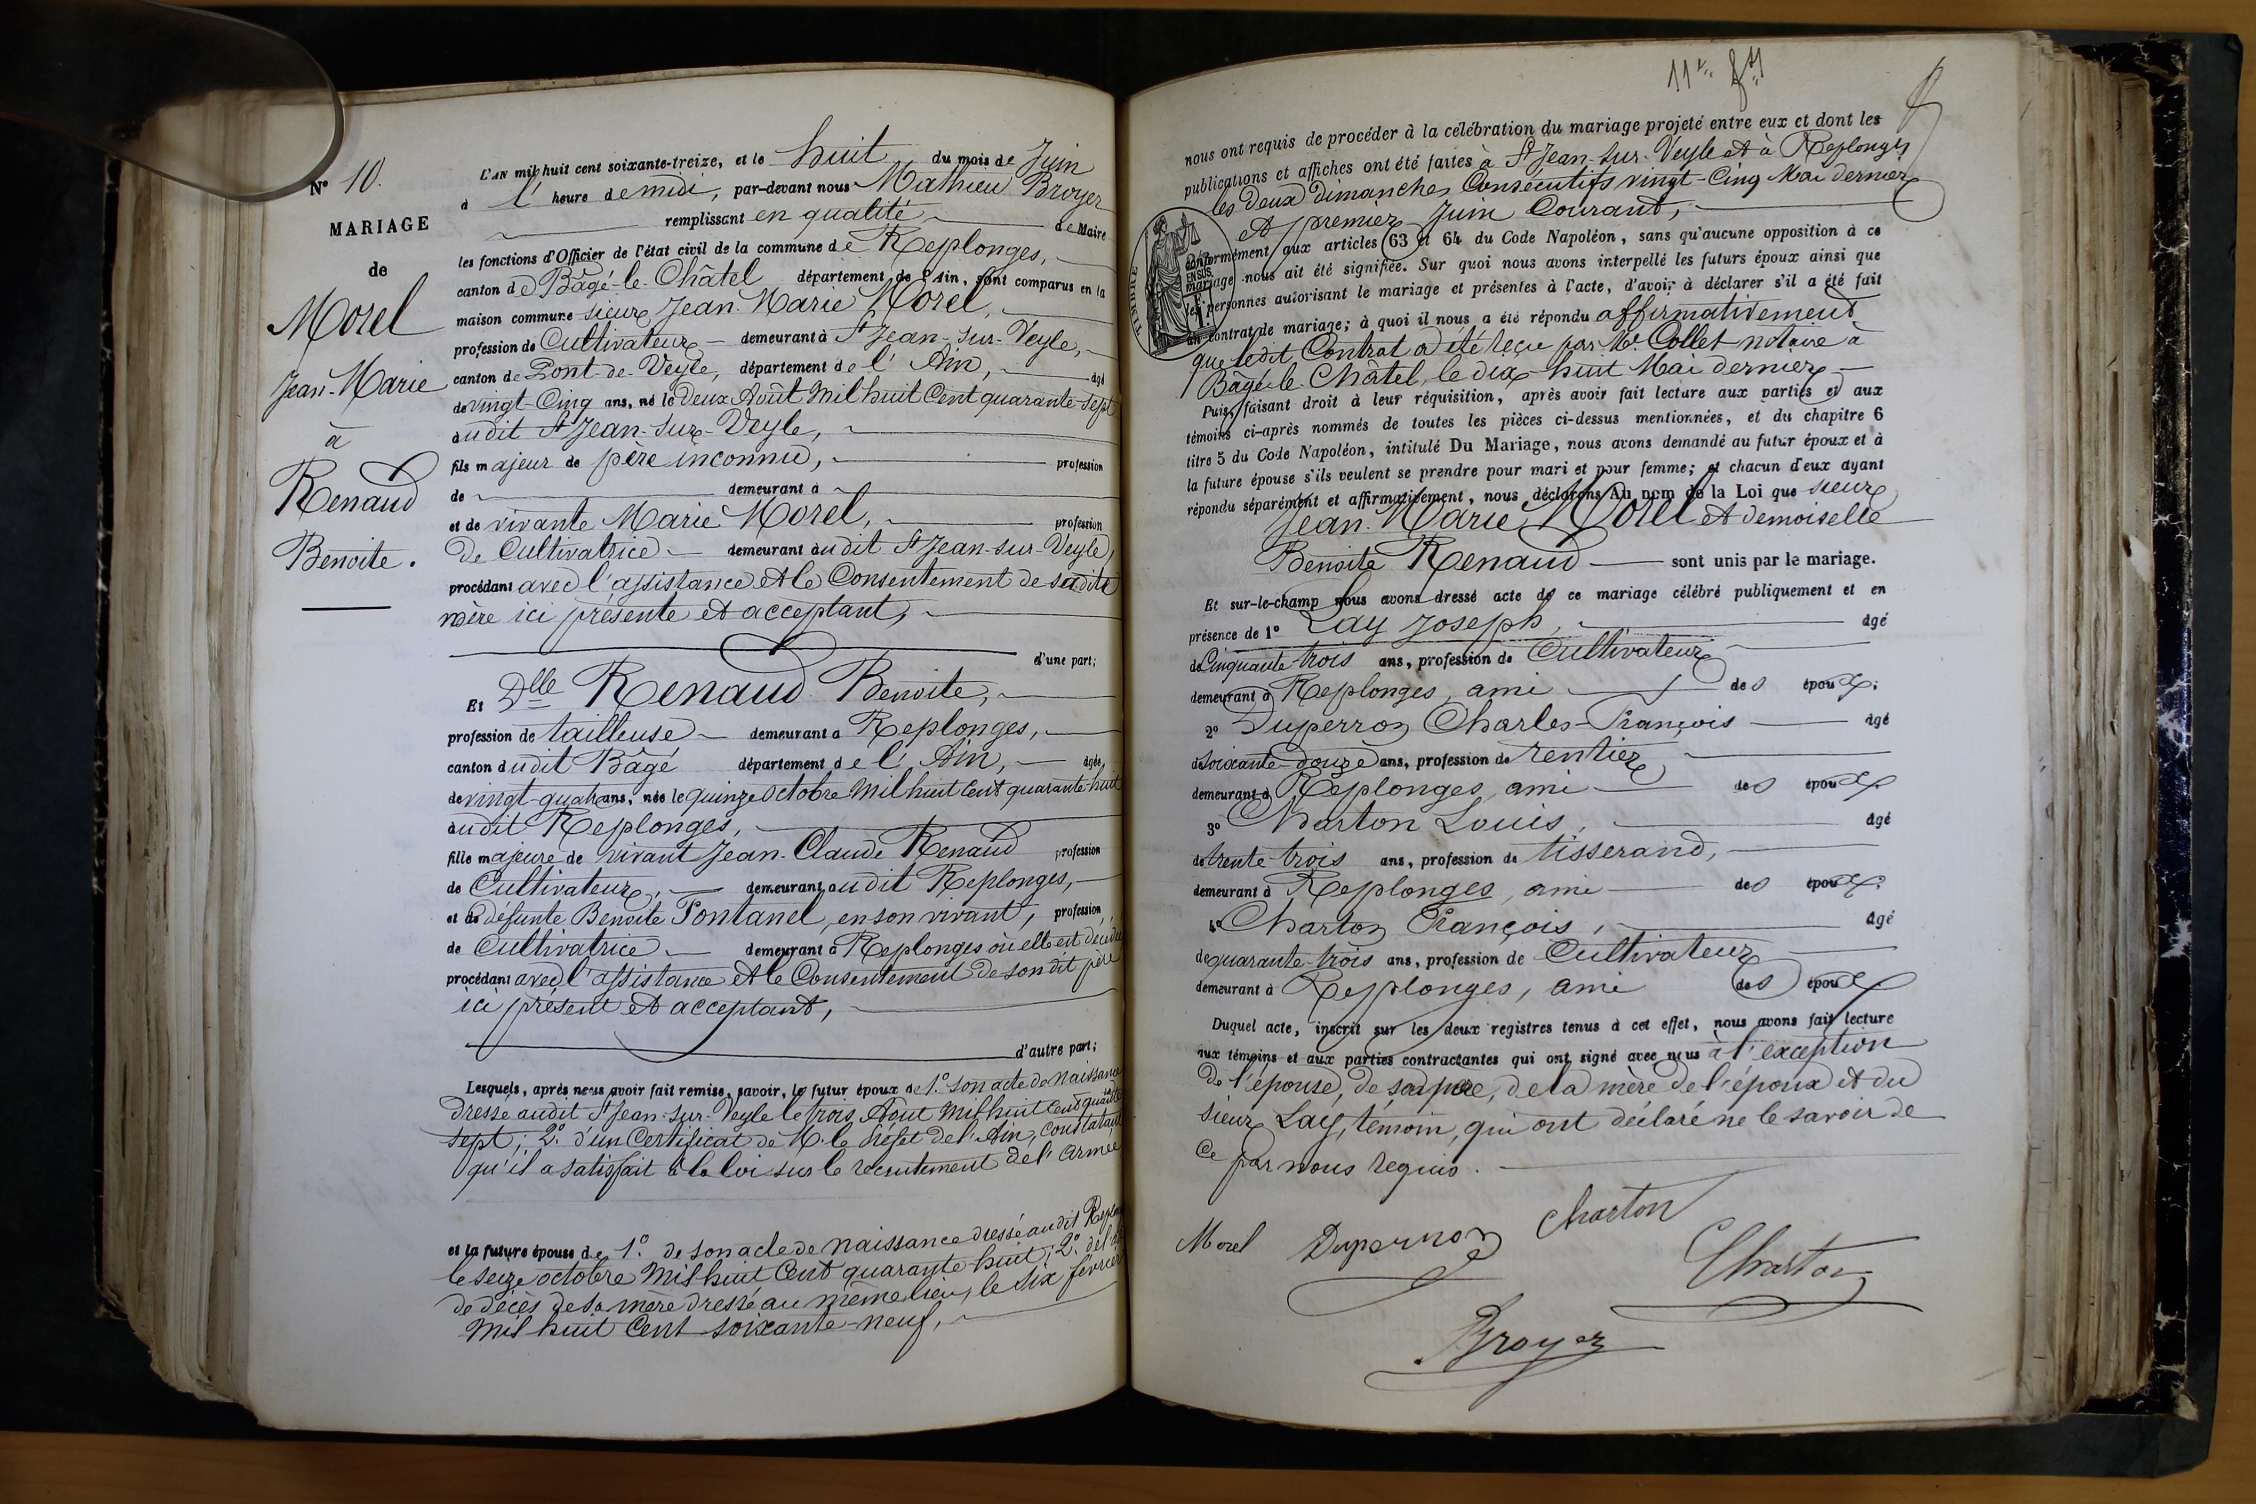 N° 10.
MARIAGE
de
Morel
Jean-Marie
à
Renaud
Benoite.
L'AN mil huit cent soixante-treize, et le huit du mois de Juin
à l' heure de midi, par-devant nous Mathieu Broyer
remplissant en qualité de Maire
les fonctions d'Officier de l'état civil de la commune de Replonges,
canton de Bâgé-le-Châtel département de l'Ain, sont comparus en la
maison commune sieur Jean-Marie Morel,
profession de Cultivateur demeurant à St Jean-sur-Veyle,
canton de Pont-de-Veyle, département de l' Ain, âgé
de vingt-Cinq ans, né le Deux Août Mil huit Cent quarante-sept
audit St Jean-sur-Veyle,
fils majeur de père inconnu, profession
de demeurant à
et de vivante Marie Morel, profession
de Cultivatrice demeurant audit St Jean-sur-Veyle,
procédant avec l'assistance et le Consentement de sadite
mère ici présente et acceptant,
d'une part;
Et Dlle Renaud Benoite,
profession de tailleuse demeurant à Replonges,
canton dudit Bâgé département de l' Ain, âgée
de vingt-quatr ans, née le quinze octobre Mil huit Cent quarante-huit
audit Replonges,
fille majeure de vivant Jean-Claude Renaud profession
de Cultivateur, demeurant audit Replonges,
et de défunte Benoite Fontanel, en son vivant, profession
de Cultivatrice demeurant à Replonges où elle est décédée
procédant avec l'assistance et le Consentement de son dit père
ici présent et acceptant,
d'autre part;
Lesquels, après nous avoir fait remise, savoir, le futur époux de 1° son acte de Naissance
dressé audit St Jean-sur-Veyle le trois Août Mil huit Cent quarante
sept; 2° d'un Certificat de M. le Préfet de l'Ain, constatant
qu'il a satisfait à la loi sur le recrutement de l'armée
et la future épouse de 1° de son acte de naissance dressé audit Replonges
le seize octobre Mil huit Cent quarante huit; 2° de l'
de décès de sa mère dressé au même lieu, le six février
Mil huit Cent soixante-neuf,
nous ont requis de procéder à la célébration du mariage projeté entre eux et dont les
publications et affiches ont été faites à St Jean-sur-Veyle et à Replonges
les deux dimanches Consécutifs vingt-Cinq Mai dernier
et premier Juin Courant,
TIMBRE
conformément aux articles 63 et 64 du Code Napoléon, sans qu'aucune opposition à ce
mariage nous ait été signifiée. Sur quoi nous avons interpellé les futurs époux ainsi que
les personnes autorisant le mariage et présentes à l'acte, d'avoir à déclarer s'il a été fait
un contrat de mariage; à quoi il nous a été répondu affirmativement
que ledit Contrat a été reçu par Me Collet notaire à
Bâgé-le-Châtel, le dix-huit Mai dernier
Puis, faisant droit à leur réquisition, après avoir fait lecture aux parties et aux
témoins ci-après nommés de toutes les pièces ci-dessus mentionnées, et du chapitre 6
titre 5 du Code Napoléon, intitulé Du Mariage, nous avons demandé au futur époux et à
la future épouse s'ils veulent se prendre pour mari et pour femme; et chacun d'eux ayant
répondu séparément et affirmativement, nous déclarons Au nom de la Loi que sieur
Jean-Marie Morel et demoiselle
Benoite Renaud sont unis par le mariage.
Et sur-le-champ nous avons dressé acte de ce mariage célébré publiquement et en
présence de 1° Lay Joseph, âgé
de Cinquante trois ans, profession de Cultivateur
demeurant à Replonges, ami des époux;
2° Duperron Charles-François âgé
de soixante-douze ans, profession de rentier
demeurant à Replonges, ami des époux
3° Charton Louis, âgé
de trente-trois ans, profession de tisserand,
demeurant à Replonges, ami des époux
4° Charton François, âgé
de quarante-trois ans, profession de Cultivateur
demeurant à Replonges, ami des époux
Duquel acte, inscrit sur les deux registres tenus à cet effet, nous avons fait lecture
aux témoins et aux parties contractantes qui ont signé avec nous à l'exception
de l'épouse, de son père, de la mère de l'époux et du
sieur Lay, témoin, qui ont déclaré ne le savoir de
ce par nous requis.
Morel Duperron Charton
Charton
Broyer